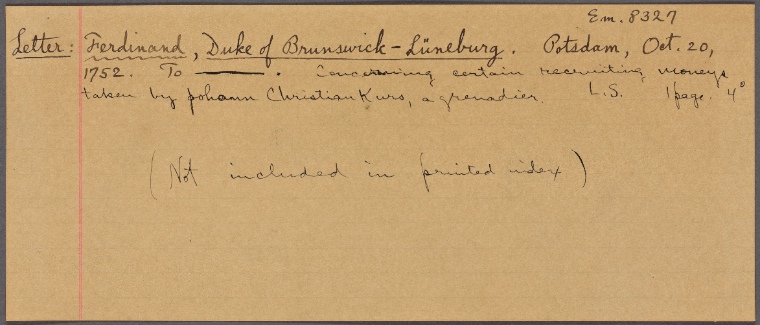 Em. 8327
Letter: Ferdinand, Duke of Brunswick-Lüneburg. Potsdam, Oct. 20,
1752. To ———. Concerning certain recruiting moneys
taken by Johann Christian Kurs, a grenadier. L.S. 1 page. 4°
(Not included in printed index)